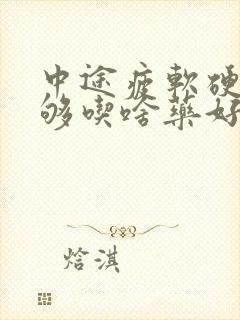 中途疲軟硬
够喫啥藥好
焓淇